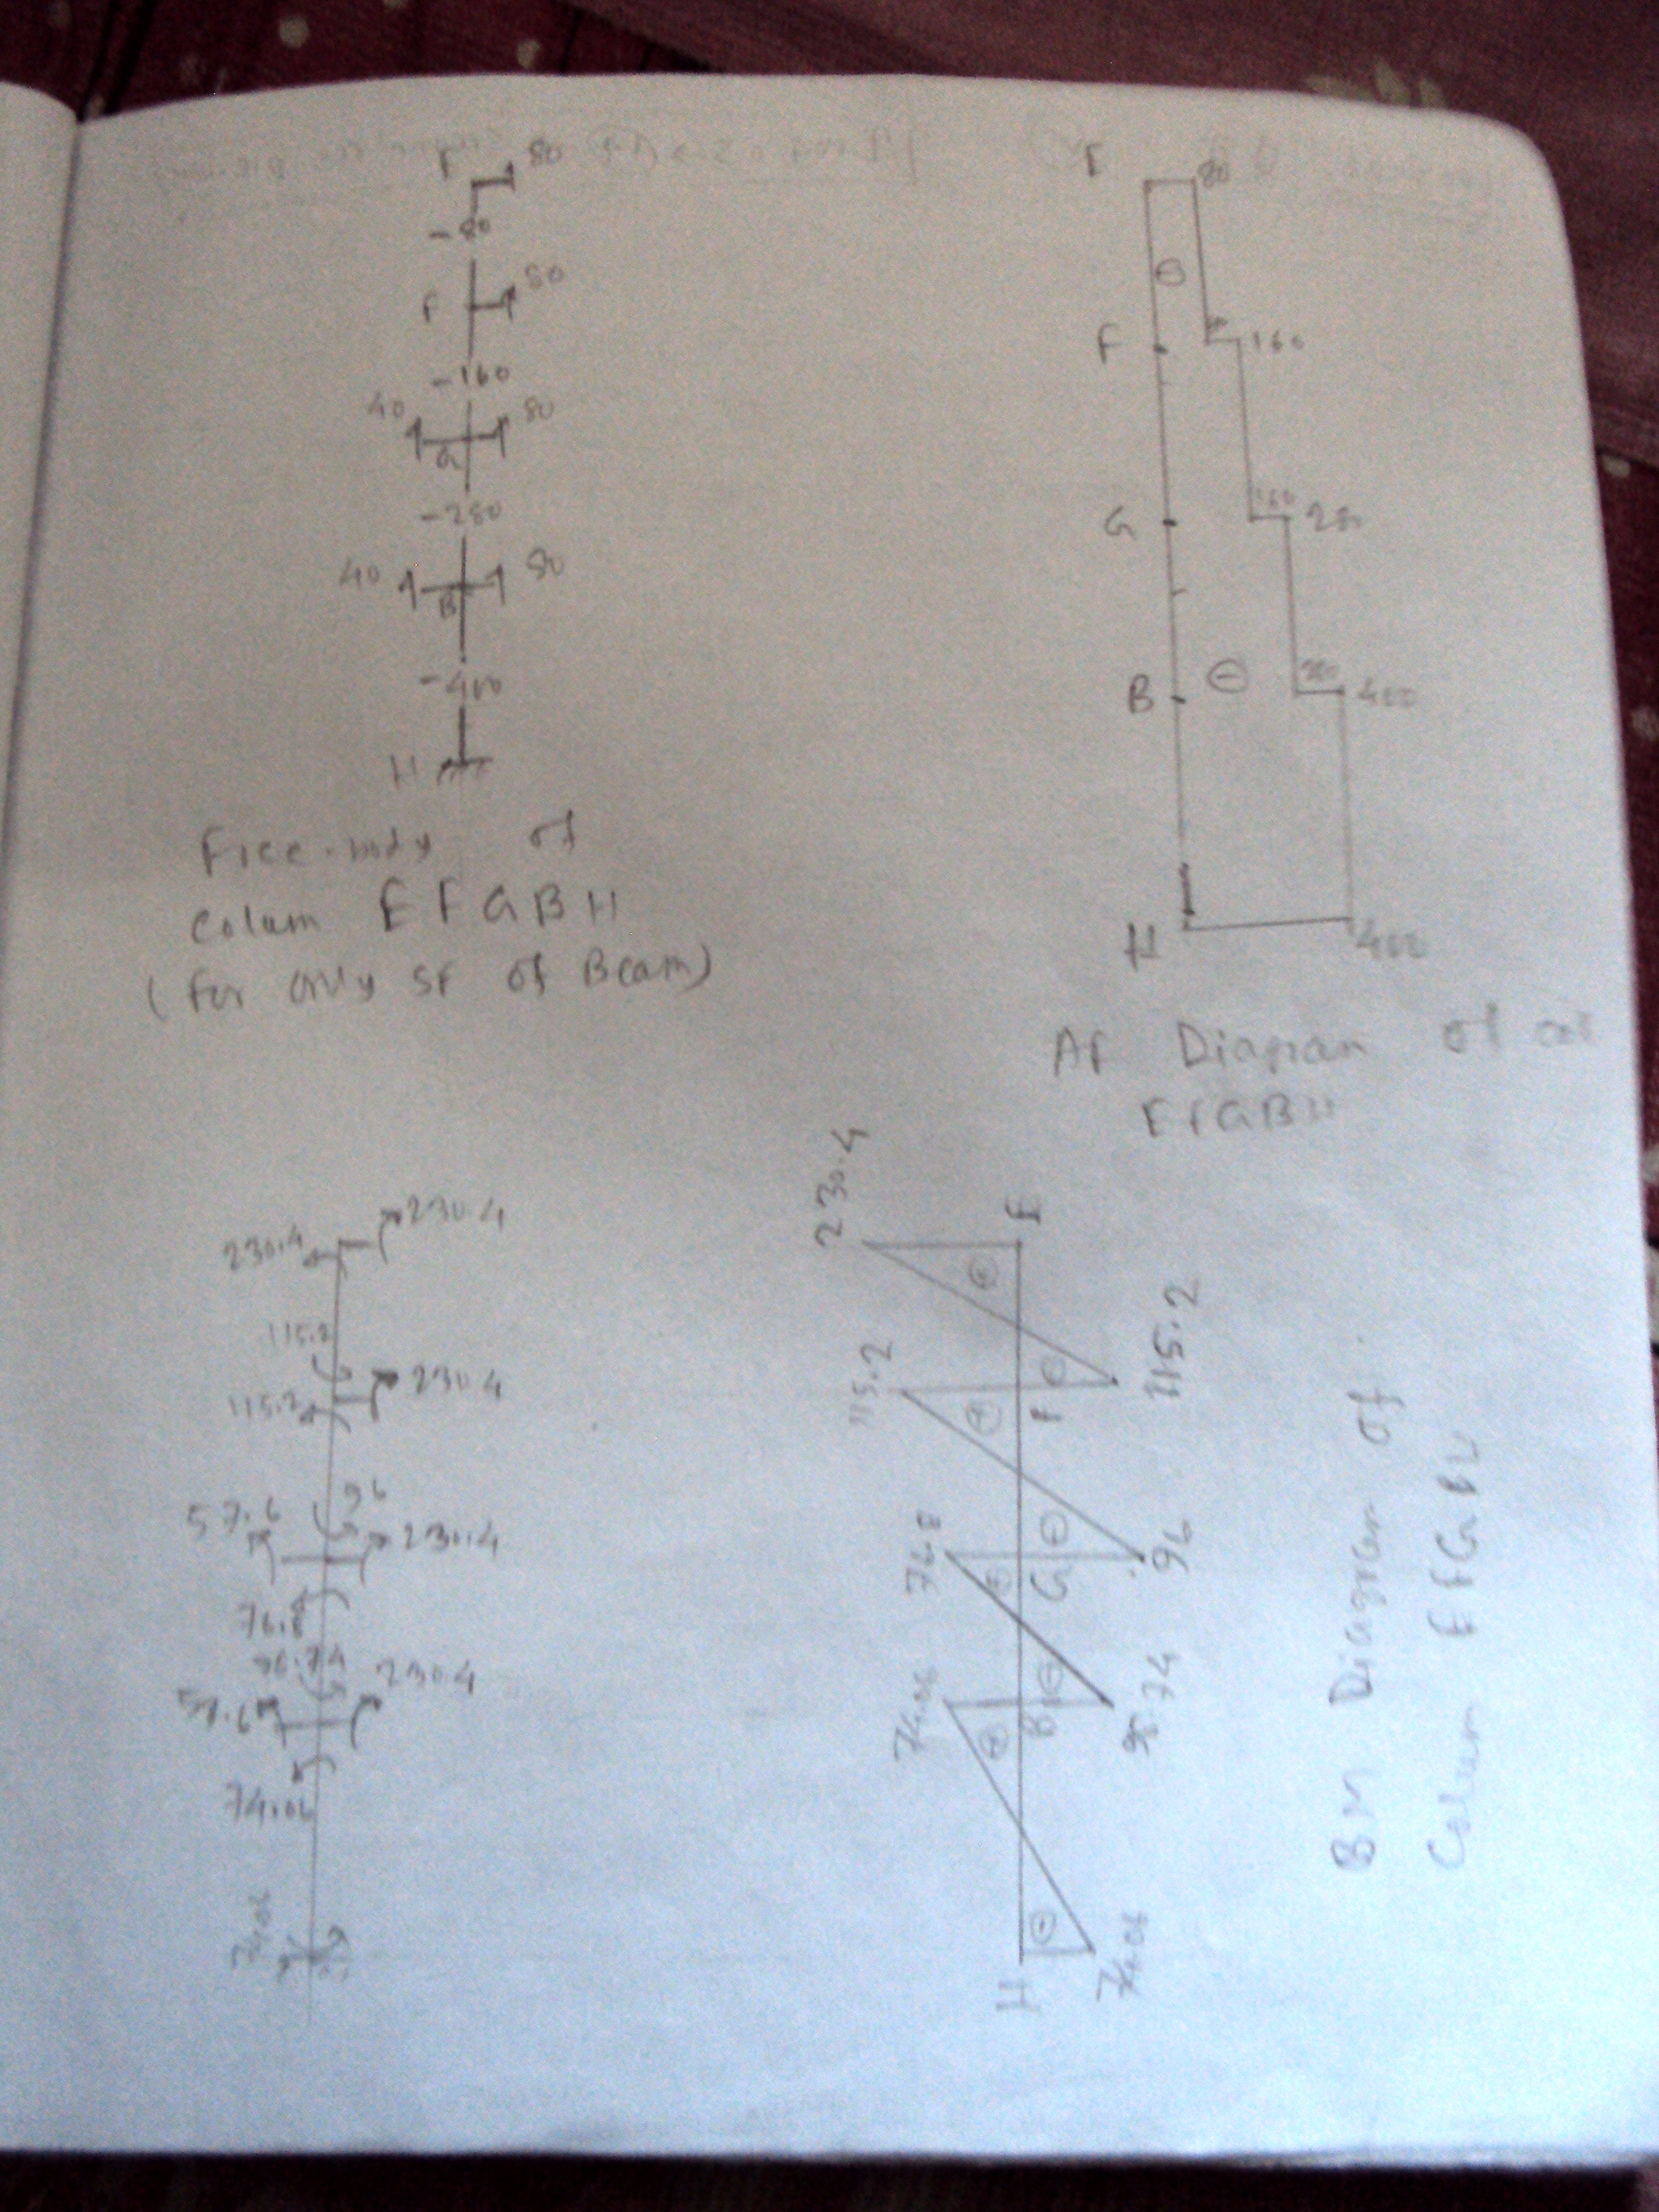 80
-80
F
80
-160
40
80
G
-280
40
80
B
-400
H
Free-body of
Colum EFGBH
(for only SF of Beam)
80
F
160
G
160
280
B
280
400
H
400
AF Diagram of col
EFGBH
230.4
230.4
115.2
230.4
115.2
57.6
96
230.4
76.8
230.4
57.6
74.06
74.06
230.4
E
115.2
F
115.2
76.8
G
96
74.06
B
98.74
H
74.06
BM Diagram of
Column EFGBH